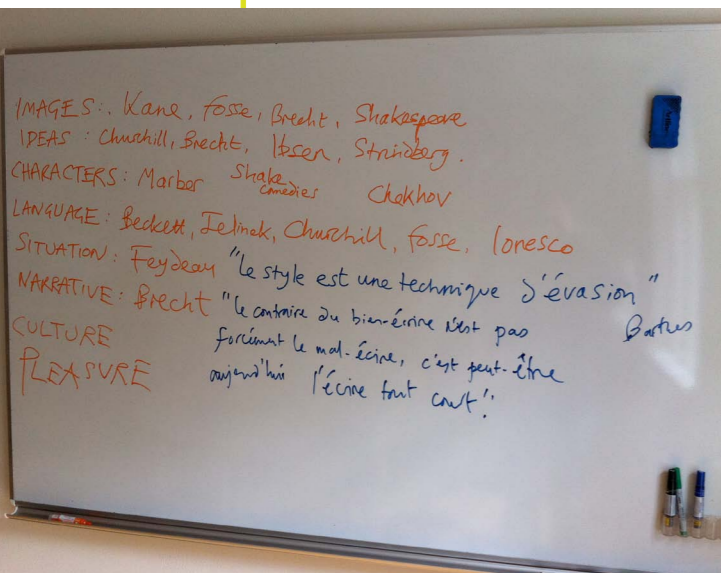 IMAGES:. Kane, Fosse, Brecht, Shakespeare
IDEAS : Churchill, Brecht, Ibsen, Strindberg.
CHARACTERS: Marber Shake comedies Chekhov
LANGUAGE: Beckett, Jelinek, Churchill, Fosse, Ionesco
SITUATION: Feydeau "le style est une technique d'évasion"
NARRATIVE: Brecht "le contraire du bien-écrire n'est pas Barthes
CULTURE forcément le mal-écrire, c'est peut-être
PLEASURE aujourd'hui l'écrire tout court".